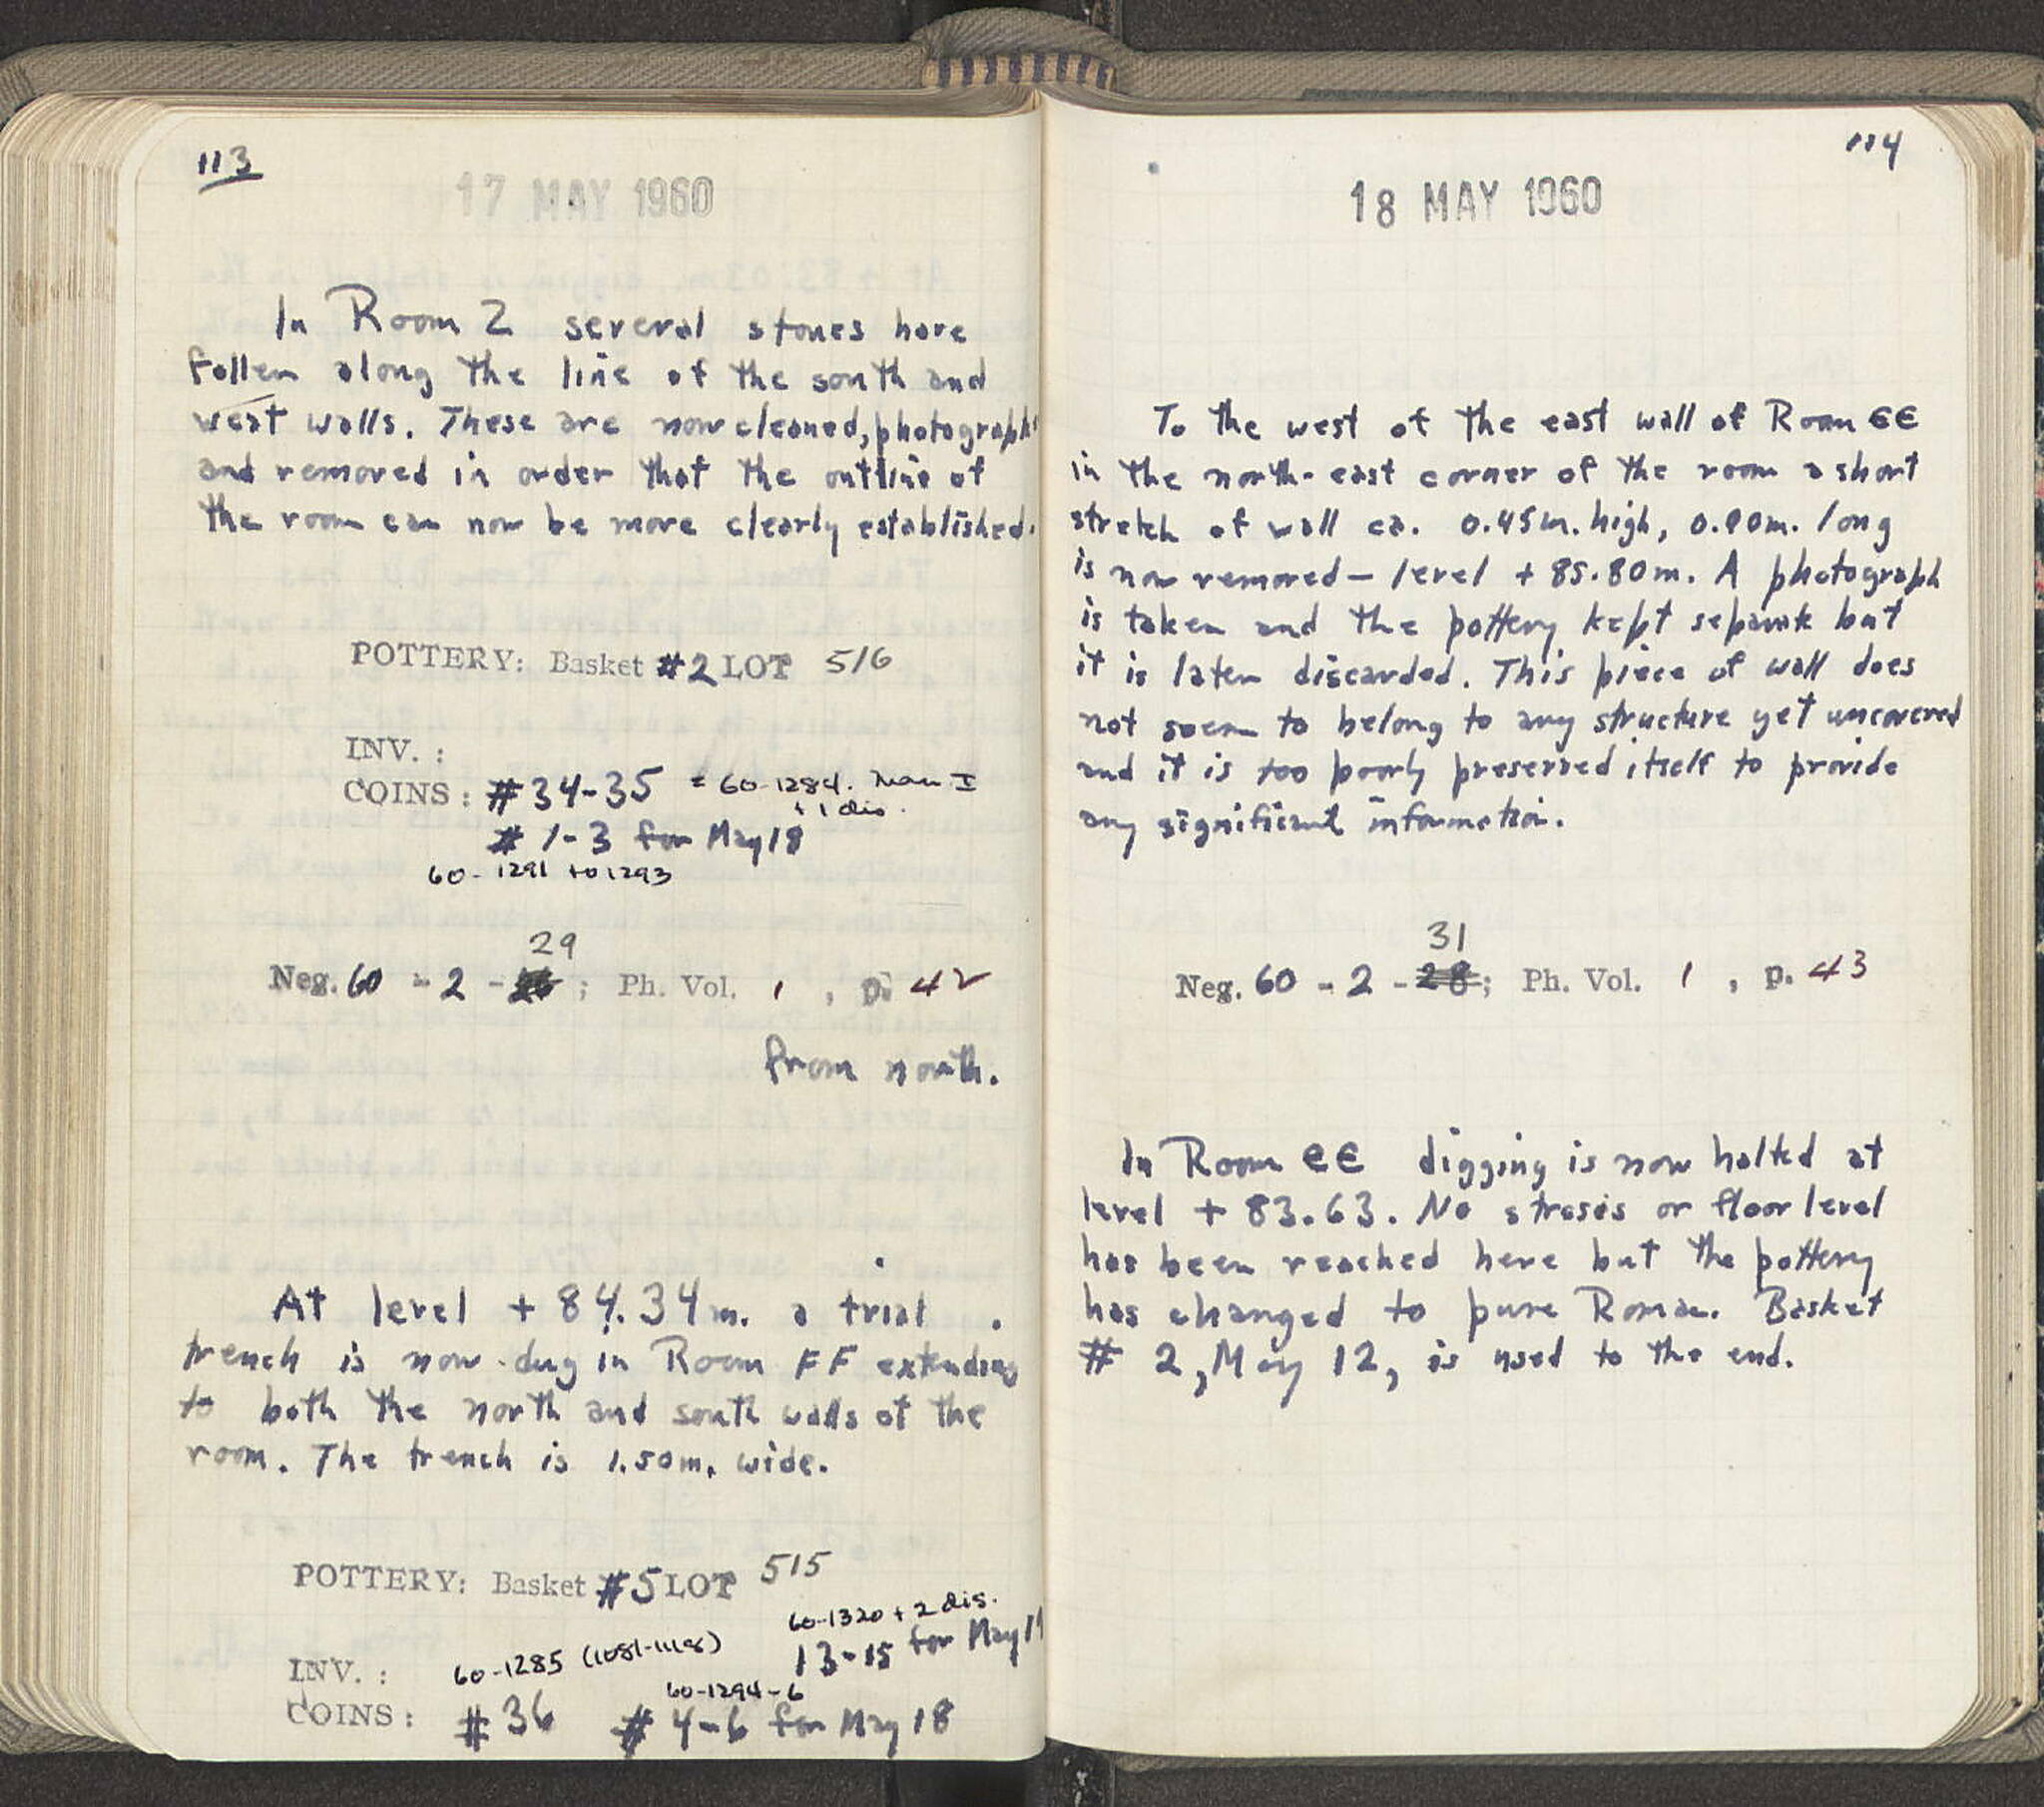 113
17 MAY 1960
In Room 2 several stones have
fallen along the line of the south and
west walls. These are now cleaned, photograph
and removed in order that the outline of
the room can now be more clearly established.
POTTERY: Basket #2 LOT 516
INV. :
COINS : #34-35 = 60-1284. Man I
+ 1 dis.
# 1-3 for May 18
60-1291 to 1293
29
Neg. 60 - 2 - ; Ph. Vol. 1 , p. 42
from north.
At level + 84.34m. a trial
trench is now dug in Room FF extending
to both the north and south walls of the
room. The trench is 1.50m. wide.
POTTERY: Basket #5 LOT 515
60-1320 + 2 dis.
13-15 for May
INV. : 60-1285 (1081-1118)
60-1294-6
COINS : #36 # 4-6 for May 18
114
18 MAY 1960
To the west of the east wall of Room EE
in the north-east corner of the room a short
stretch of wall ca. 0.45m. high, 0.90m. long
is now removed — level + 85.80m. A photograph
is taken and the pottery kept separate but
it is later discarded. This piece of wall does
not seem to belong to any structure yet uncovered
and it is too poorly preserved itself to provide
any significant information.
31
Neg. 60 - 2 - 28; Ph. Vol. 1 , p. 43
In Room EE digging is now halted at
level + 83.63. No strosis or floor level
has been reached here but the pottery
has changed to pure Roman. Basket
# 2, May 12, is used to the end.